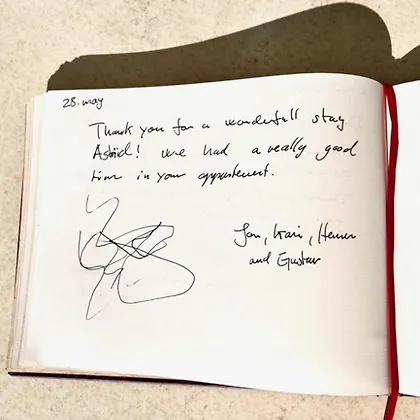 28. may
Thank you for a wonderfull stay
Astrid! we had a really good
time in your appartement.
and